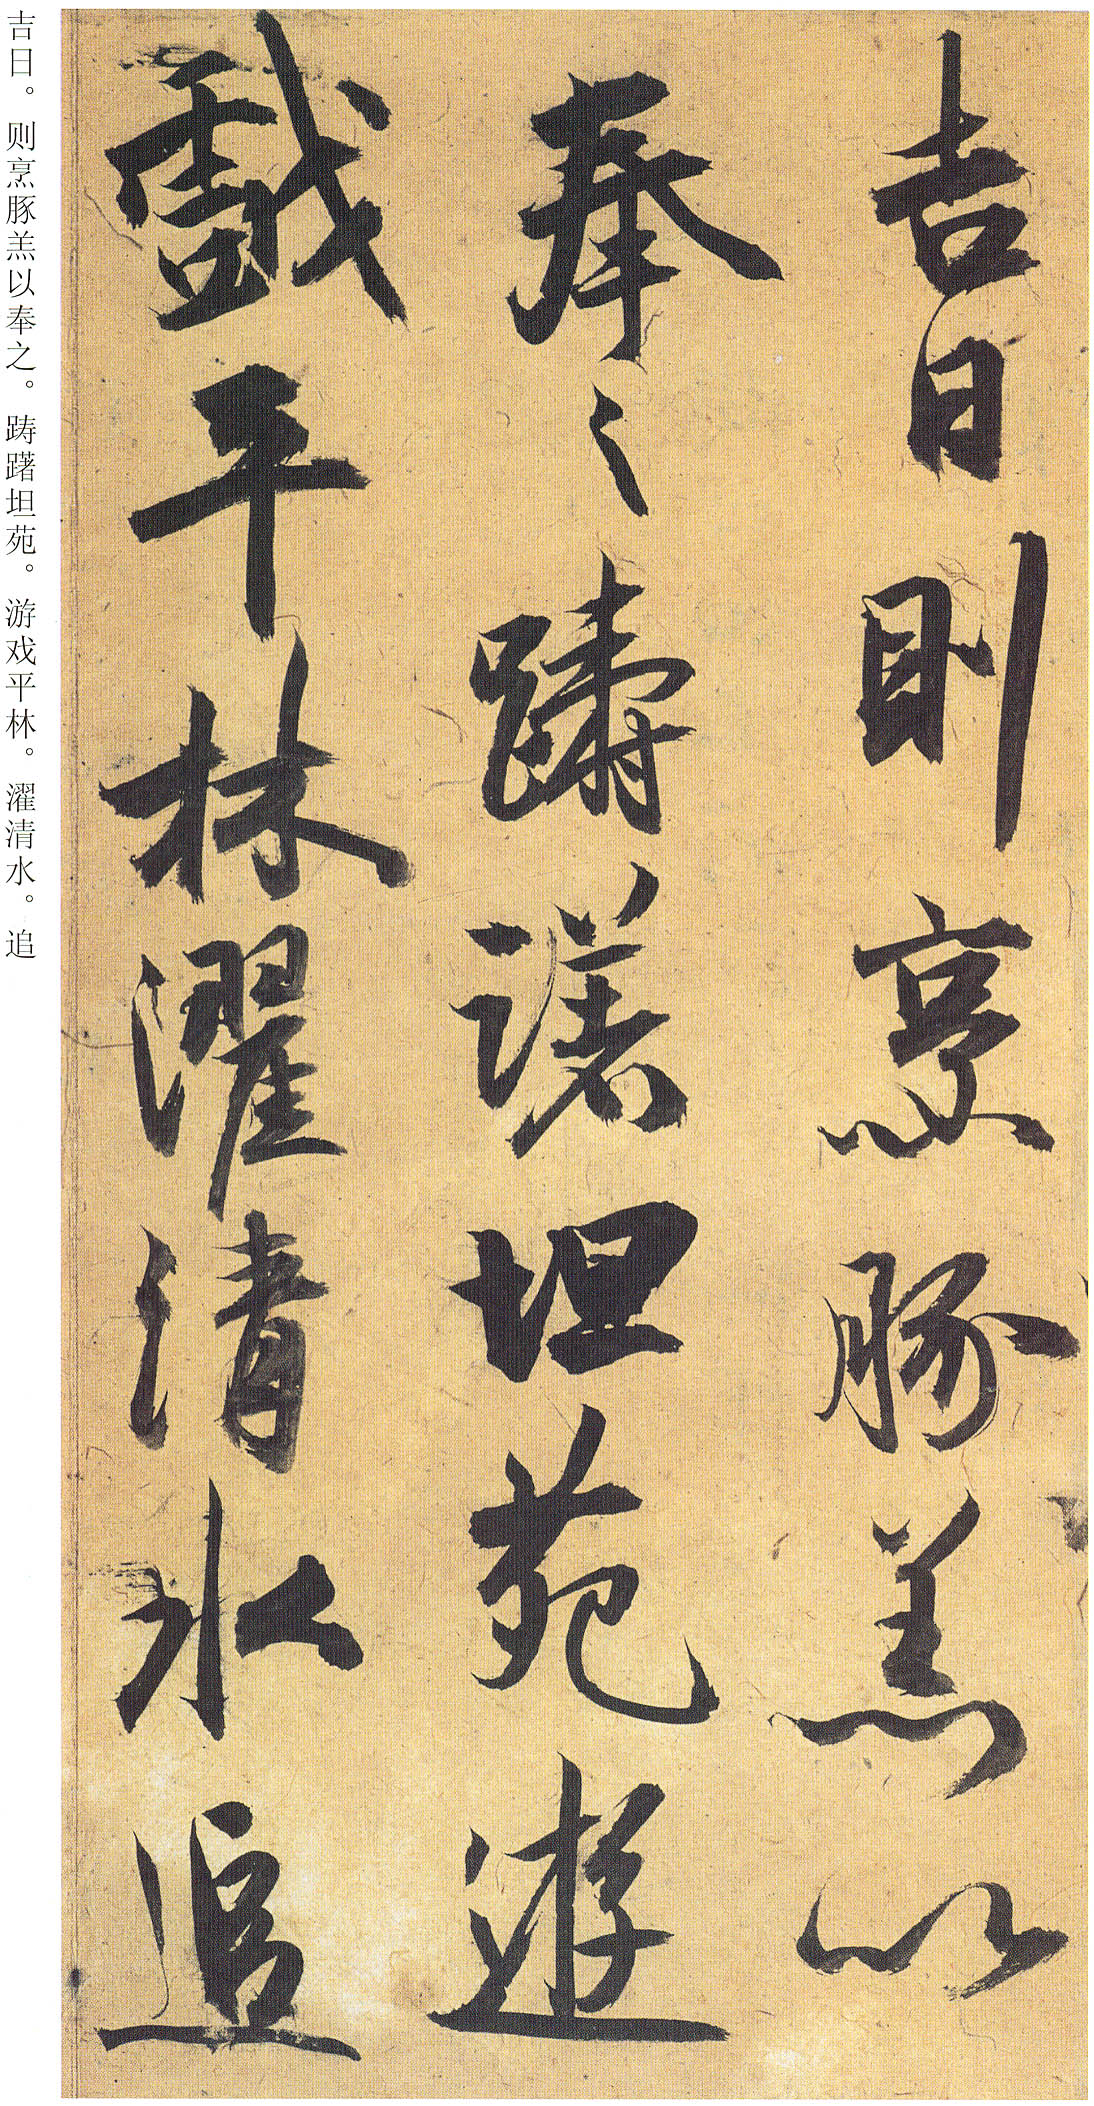 吉日則烹豚羔以
奉之蹰躇坦苑遊
戲平林濯清水追
吉日。则烹豚羔以奉之。踌躇坦苑。游戏平林。濯清水。追